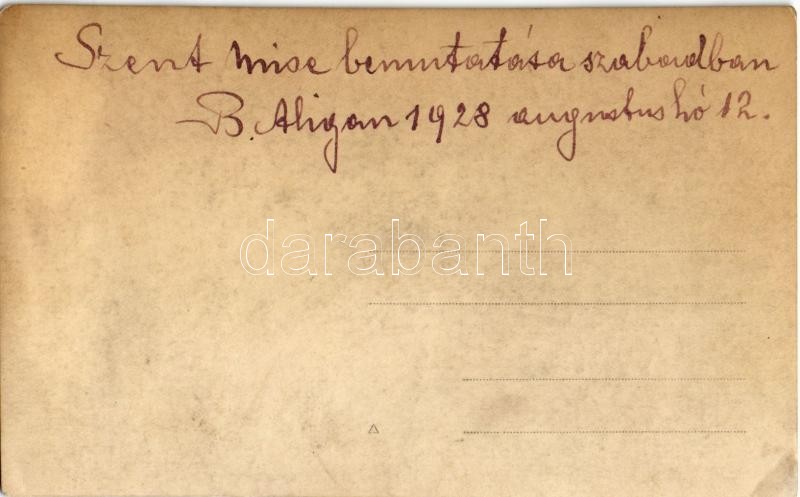 Szent mise bemutatása szabadban
B. Aligan 1928 augustus hó 12.
darabanth